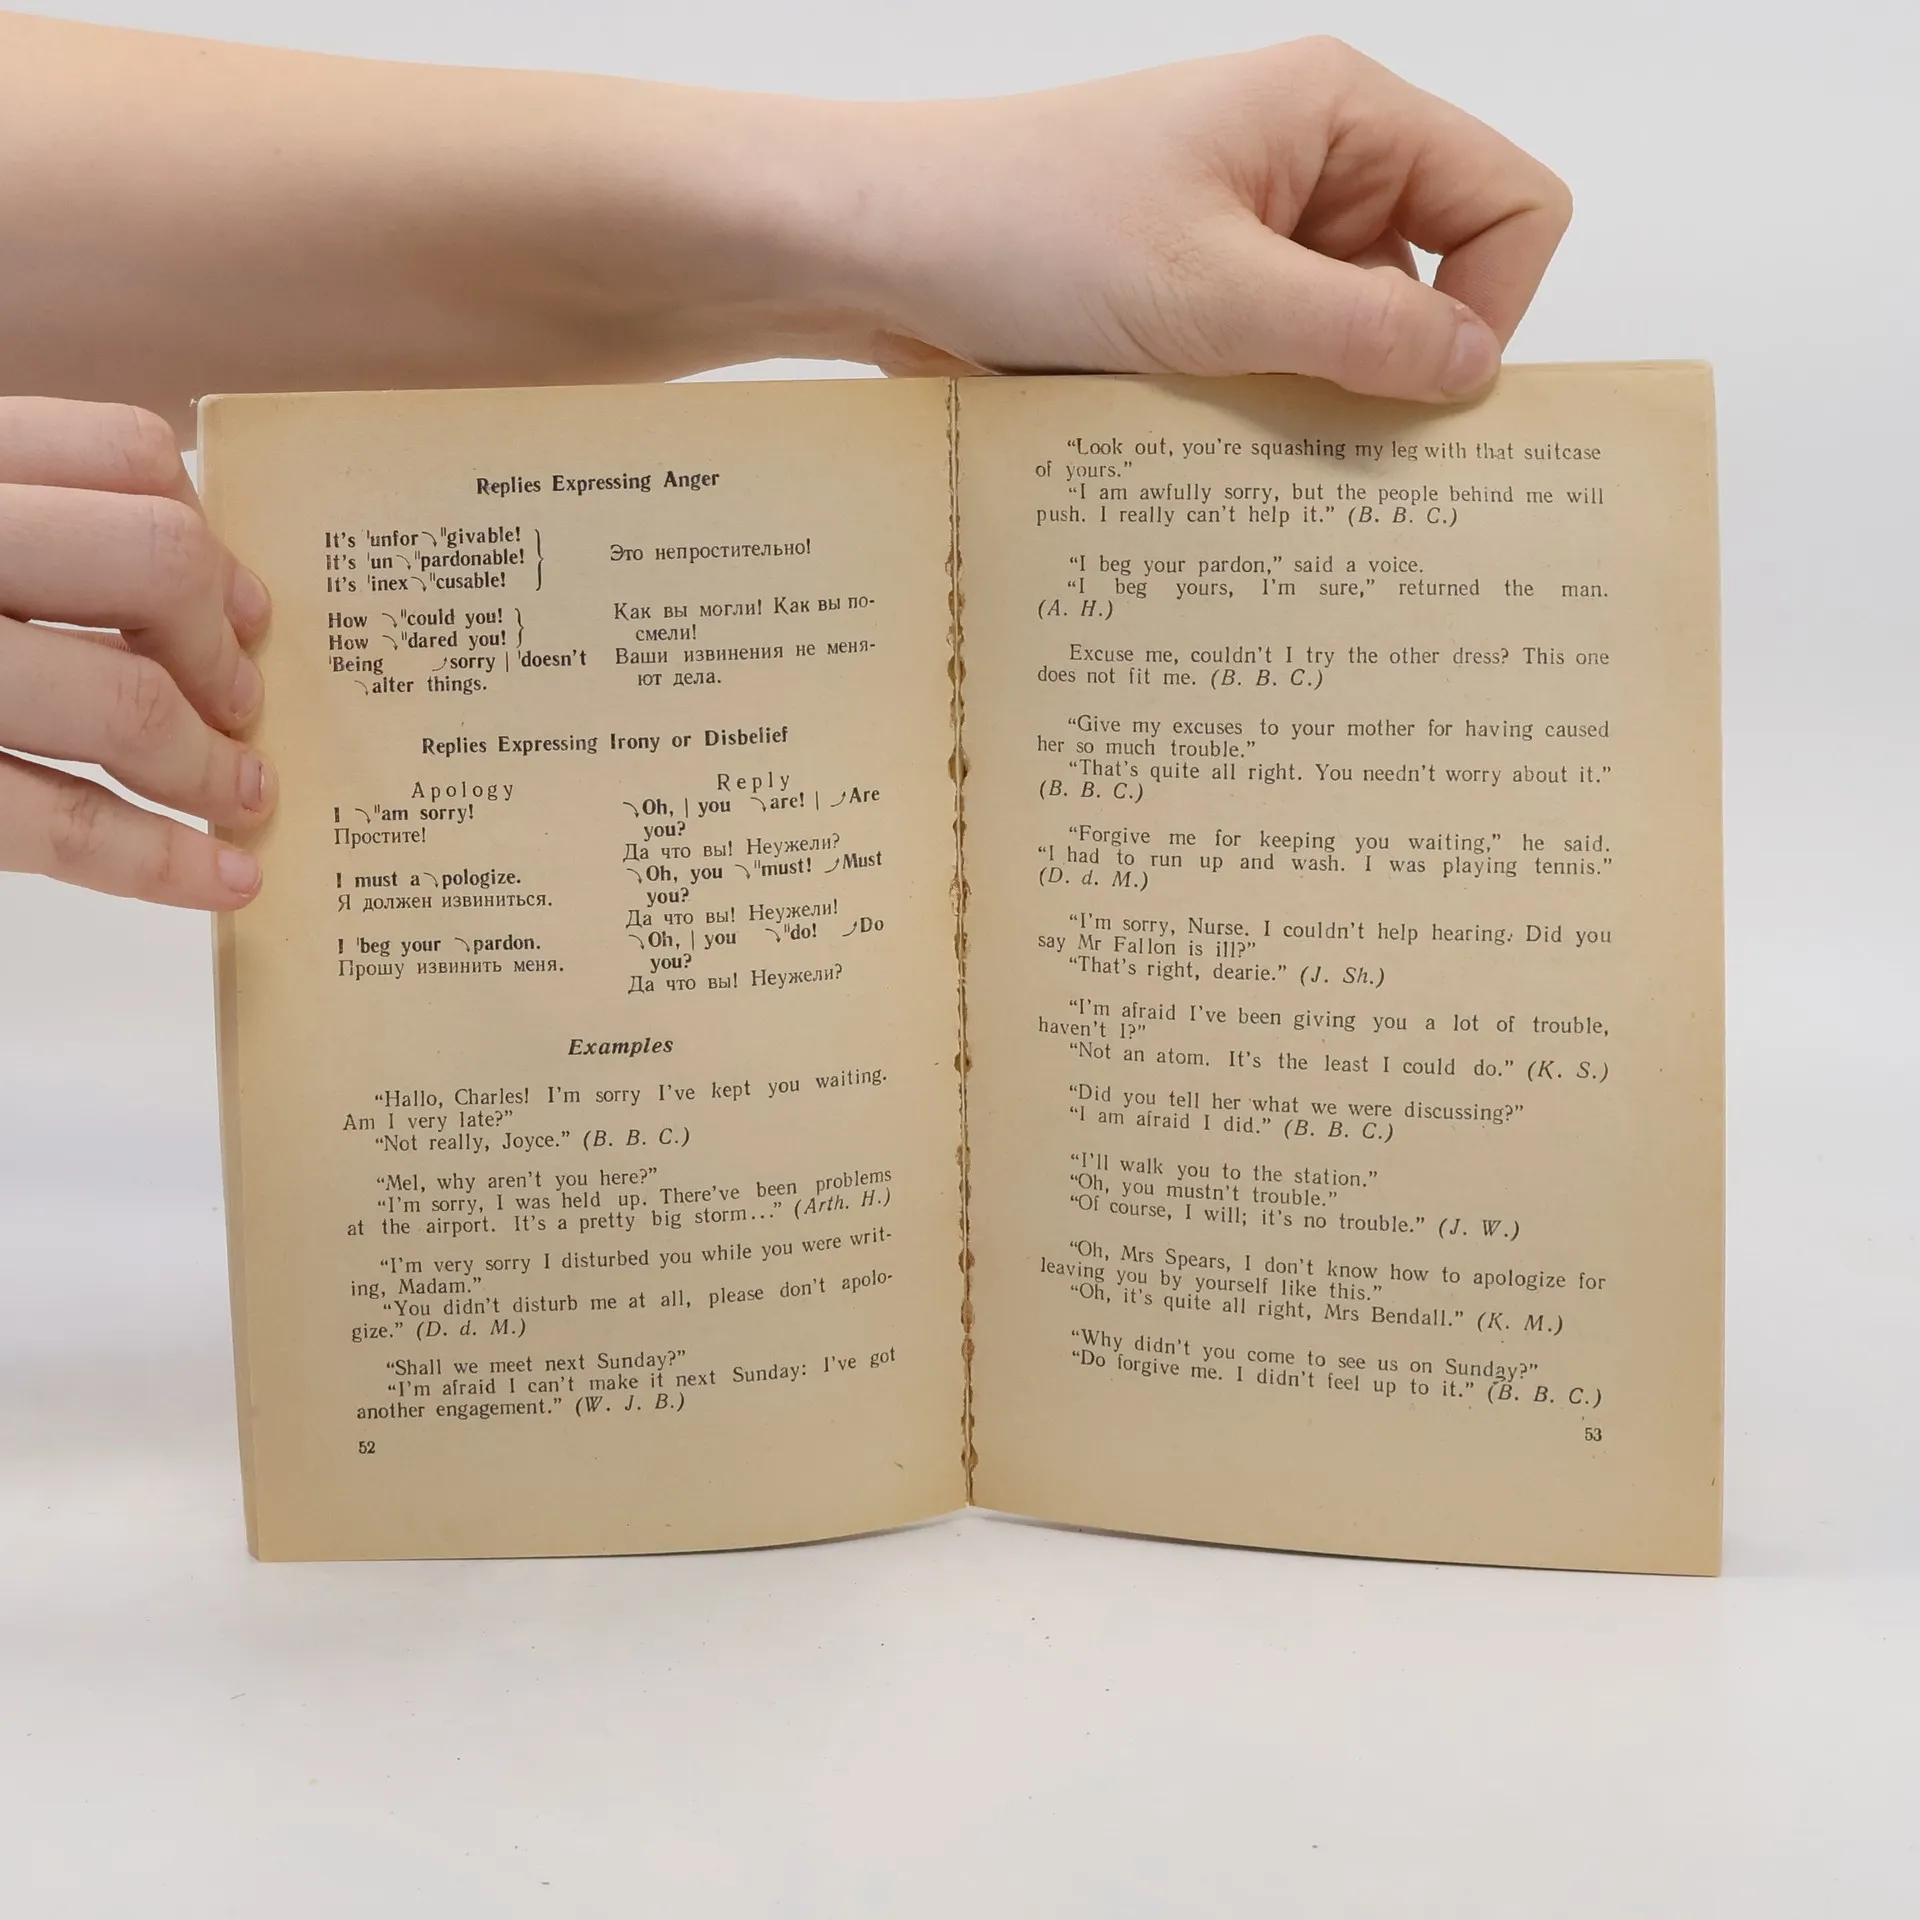 Replies Expressing Anger
It's ˈunfor↘"givable!
It's ˈun↘"pardonable!
It's ˈinex↘"cusable!
Это непростительно!
How ↘"could you!
How ↘"dared you!
Как вы могли! Как вы по-
смели!
ˈBeing ⤴sorry | ˈdoesn't
↘alter things.
Ваши извинения не меня-
ют дела.
Replies Expressing Irony or Disbelief
Apology
I ↘"am sorry!
Простите!
I must a↘pologize.
Я должен извиниться.
I ˈbeg your ↘pardon.
Прошу извинить меня.
Reply
↘Oh, | you ↘are! | ⤴Are
you?
Да что вы! Неужели?
↘Oh, you ↘"must! ⤴Must
you?
Да что вы! Неужели!
↘Oh, | you ↘"do! ⤴Do
you?
Да что вы! Неужели?
Examples
“Hallo, Charles! I'm sorry I've kept you waiting.
Am I very late?”
“Not really, Joyce.” (B. B. C.)
“Mel, why aren't you here?”
“I'm sorry, I was held up. There've been problems
at the airport. It's a pretty big storm...” (Arth. H.)
“I'm very sorry I disturbed you while you were writ-
ing, Madam.”
“You didn't disturb me at all, please don't apolo-
gize.” (D. d. M.)
“Shall we meet next Sunday?”
“I'm afraid I can't make it next Sunday: I've got
another engagement.” (W. J. B.)
52
“Look out, you're squashing my leg with that suitcase
of yours.”
“I am awfully sorry, but the people behind me will
push. I really can't help it.” (B. B. C.)
“I beg your pardon,” said a voice.
“I beg yours, I'm sure,” returned the man.
(A. H.)
Excuse me, couldn't I try the other dress? This one
does not fit me. (B. B. C.)
“Give my excuses to your mother for having caused
her so much trouble.”
“That's quite all right. You needn't worry about it.”
(B. B. C.)
“Forgive me for keeping you waiting,” he said.
“I had to run up and wash. I was playing tennis.”
(D. d. M.)
“I'm sorry, Nurse. I couldn't help hearing. Did you
say Mr Fallon is ill?”
“That's right, dearie.” (J. Sh.)
“I'm afraid I've been giving you a lot of trouble,
haven't I?”
“Not an atom. It's the least I could do.” (K. S.)
“Did you tell her what we were discussing?”
“I am afraid I did.” (B. B. C.)
“I'll walk you to the station.”
“Oh, you mustn't trouble.”
“Of course, I will; it's no trouble.” (J. W.)
“Oh, Mrs Spears, I don't know how to apologize for
leaving you by yourself like this.”
“Oh, it's quite all right, Mrs Bendall.” (K. M.)
“Why didn't you come to see us on Sunday?”
“Do forgive me. I didn't feel up to it.” (B. B. C.)
53